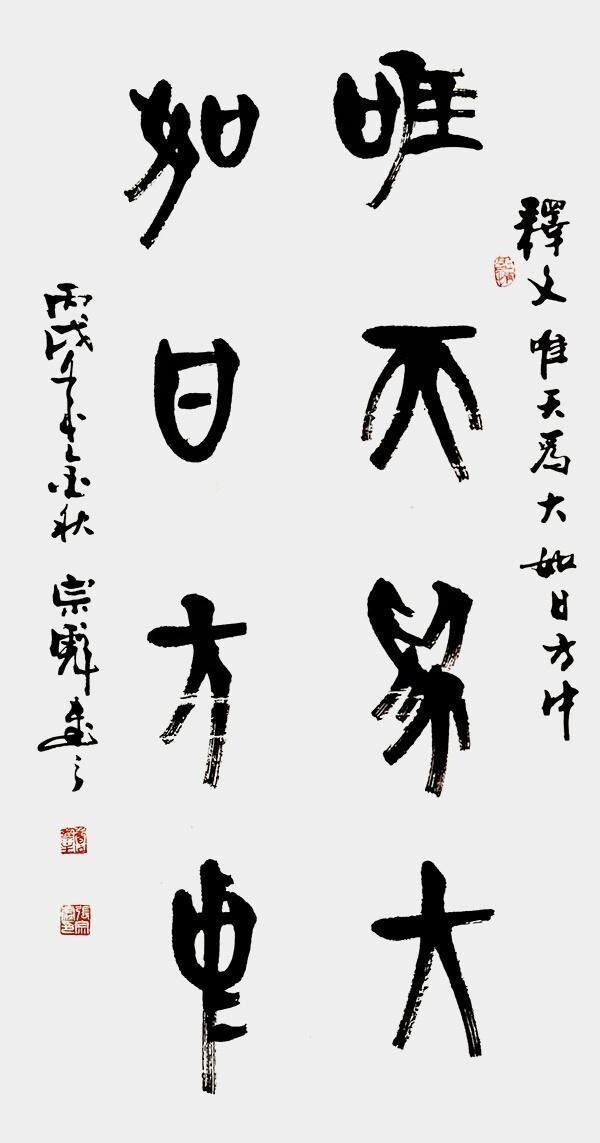 釋文 唯天為大 如日方中
唯天為大
如日方中
丙戌年 金秋 宗 書